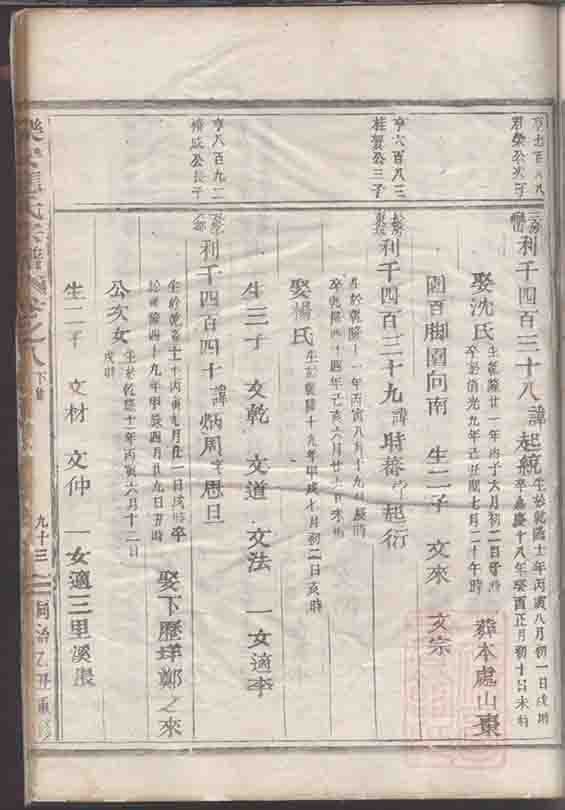 亨七百八八
君榮公次子
利千四百三十八諱起統
生於乾隆十一年丙寅八月初一日戌時
卒嘉慶十八年癸酉正月初十日未時
娶沈氏
生乾隆廿一年丙子六月初二日
卒於道光九年己丑閏七月二十午時
葬本處山東
園百脚圍向南 生二子 文來 文宗
亨六百八三
桂賢公三子
利千四百三十九諱時蕃 起衍
生於乾隆十一年丙寅八月十九日辰時
卒乾隆四十四年己亥六月廿七日未時
娶楊氏
生於乾隆十九年甲戌七月初二日亥時
生三子 文乾 文道 文法 一女適李
亨八百九二
公長子
利千四百四十諱炳周字思旦
生於乾隆十一年丙寅九月廿一日戌時卒
於乾隆四十九年甲辰四月廿九日丑時
娶下歷垟鄭之來
公次女
生於乾隆十一年丙寅六月十二日
戌時
生二子 文材 文仲 一女適三里溪裴
氏宗譜 卷之八 下
九十三 同治乙丑重修